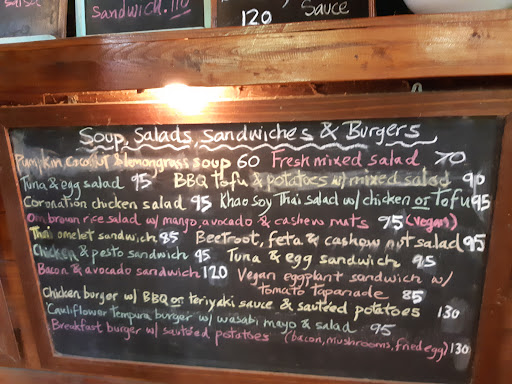 Sandwich. 110
120 Sauce
Soup, Salads, Sandwiches & Burgers
Pumpkin, Coconut & lemongrass soup 60 Fresh mixed salad 70
Tuna & egg salad 95 BBQ tofu & potatoes w/ mixed salad 90
Coronation chicken salad 95 Khao Soy Thai salad w/ chicken or Tofu 95
Om brown rice salad w/ mango, avocado & cashew nuts 95 (vegan)
Thai omelet sandwich 85 Beetroot, feta & cashew nut salad 95
Chicken & pesto sandwich 95 Tuna & egg sandwich 95
Bacon & avocado sandwich 120 Vegan eggplant sandwich w/
tomato tapanade 85
Chicken burger w/ BBQ or teriyaki sauce & sautéed potatoes 130
Cauliflower tempura burger w/ wasabi mayo & salad 95
Breakfast burger w/ sautéed potatoes (bacon, mushrooms, fried egg) 130